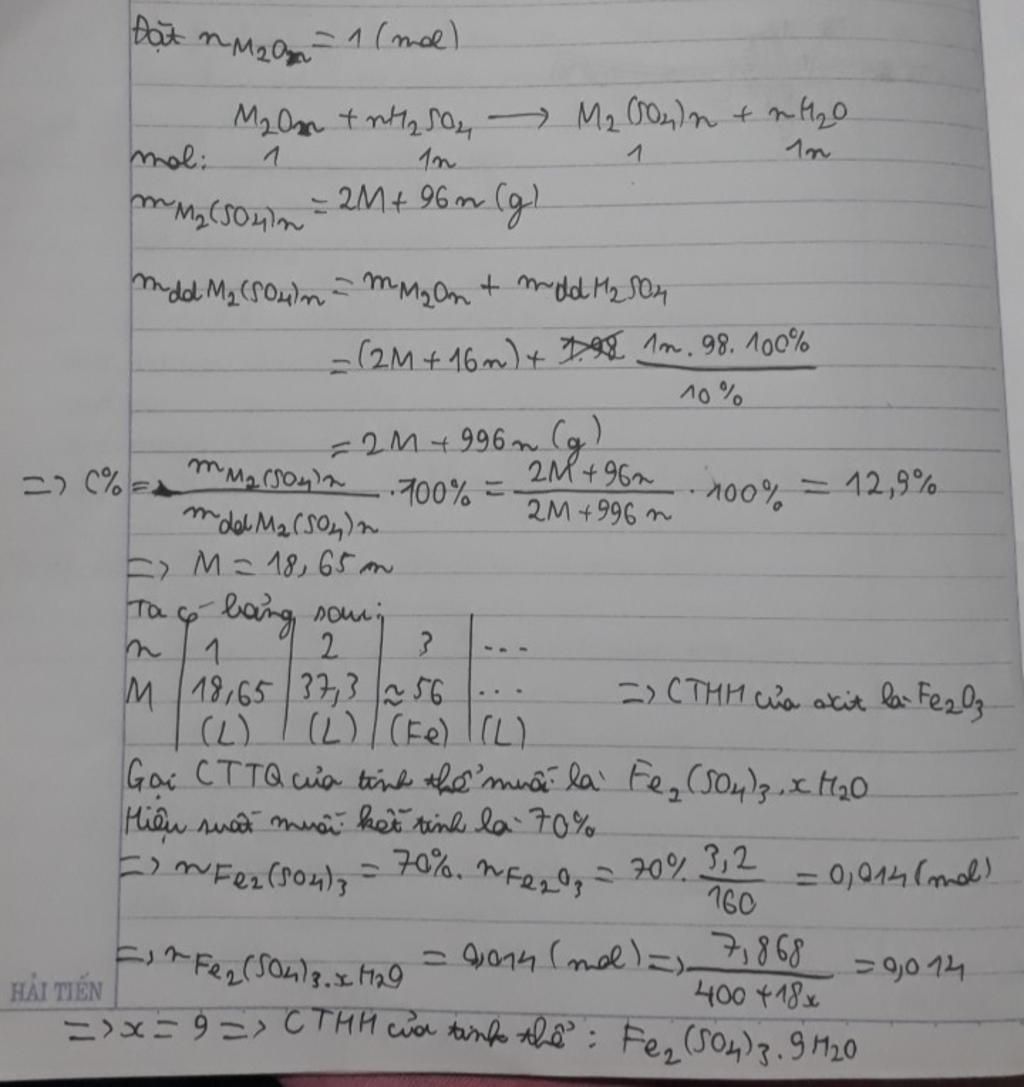 Đặt n M₂Oₙ = 1 (mol)
M₂Oₙ + nH₂SO₄ → M₂(SO₄)n + nH₂O
mol: 1 1n 1 1n
m M₂(SO₄)n = 2M + 96n (g)
m ddM₂(SO₄)n = m M₂On + m ddH₂SO₄
= (2M + 16n) + 1n . 98 . 100% / 10%
= 2M + 996n (g)
=> C% = m M₂(SO₄)n / m ddM₂(SO₄)n . 100% = 2M + 96n / 2M + 996n . 100% = 12,9%
=> M = 18,65n
Ta có bảng sau:
n | 1 | 2 | 3 | ...
M | 18,65 | 37,3 | ≈ 56 | ... => CTHH của oxit là Fe₂O₃
(L) | (L) | (Fe) | (L)
Gọi CTTQ của tinh thể muối là: Fe₂(SO₄)₃.xH₂O
Hiệu suất muối kết tinh là 70%
=> n Fe₂(SO₄)₃ = 70% . n Fe₂O₃ = 70% . 3,2 / 160 = 0,014 (mol)
=> n Fe₂(SO₄)₃.xH₂O = 0,014 (mol) => 7,868 / 400 + 18x = 0,014
HẢI TIẾN
=> x = 9 => CTHH của tinh thể: Fe₂(SO₄)₃.9H₂O